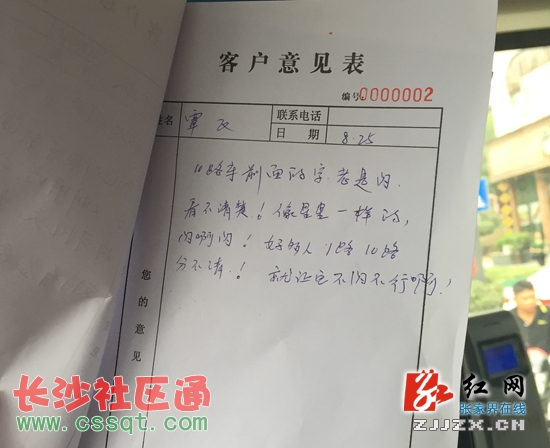 客户意见表
编号:0000002
姓名 覃 联系电话
日期 8.25
10路车前面的字老是闪.
看不清楚!像星星一样的,
闪啊闪!好多人1路10路
分不清.!就让它不闪不行啊!
您的意见
长沙社区通
www.cssqt.com
红网
张家界在线
ZJJZX.CN